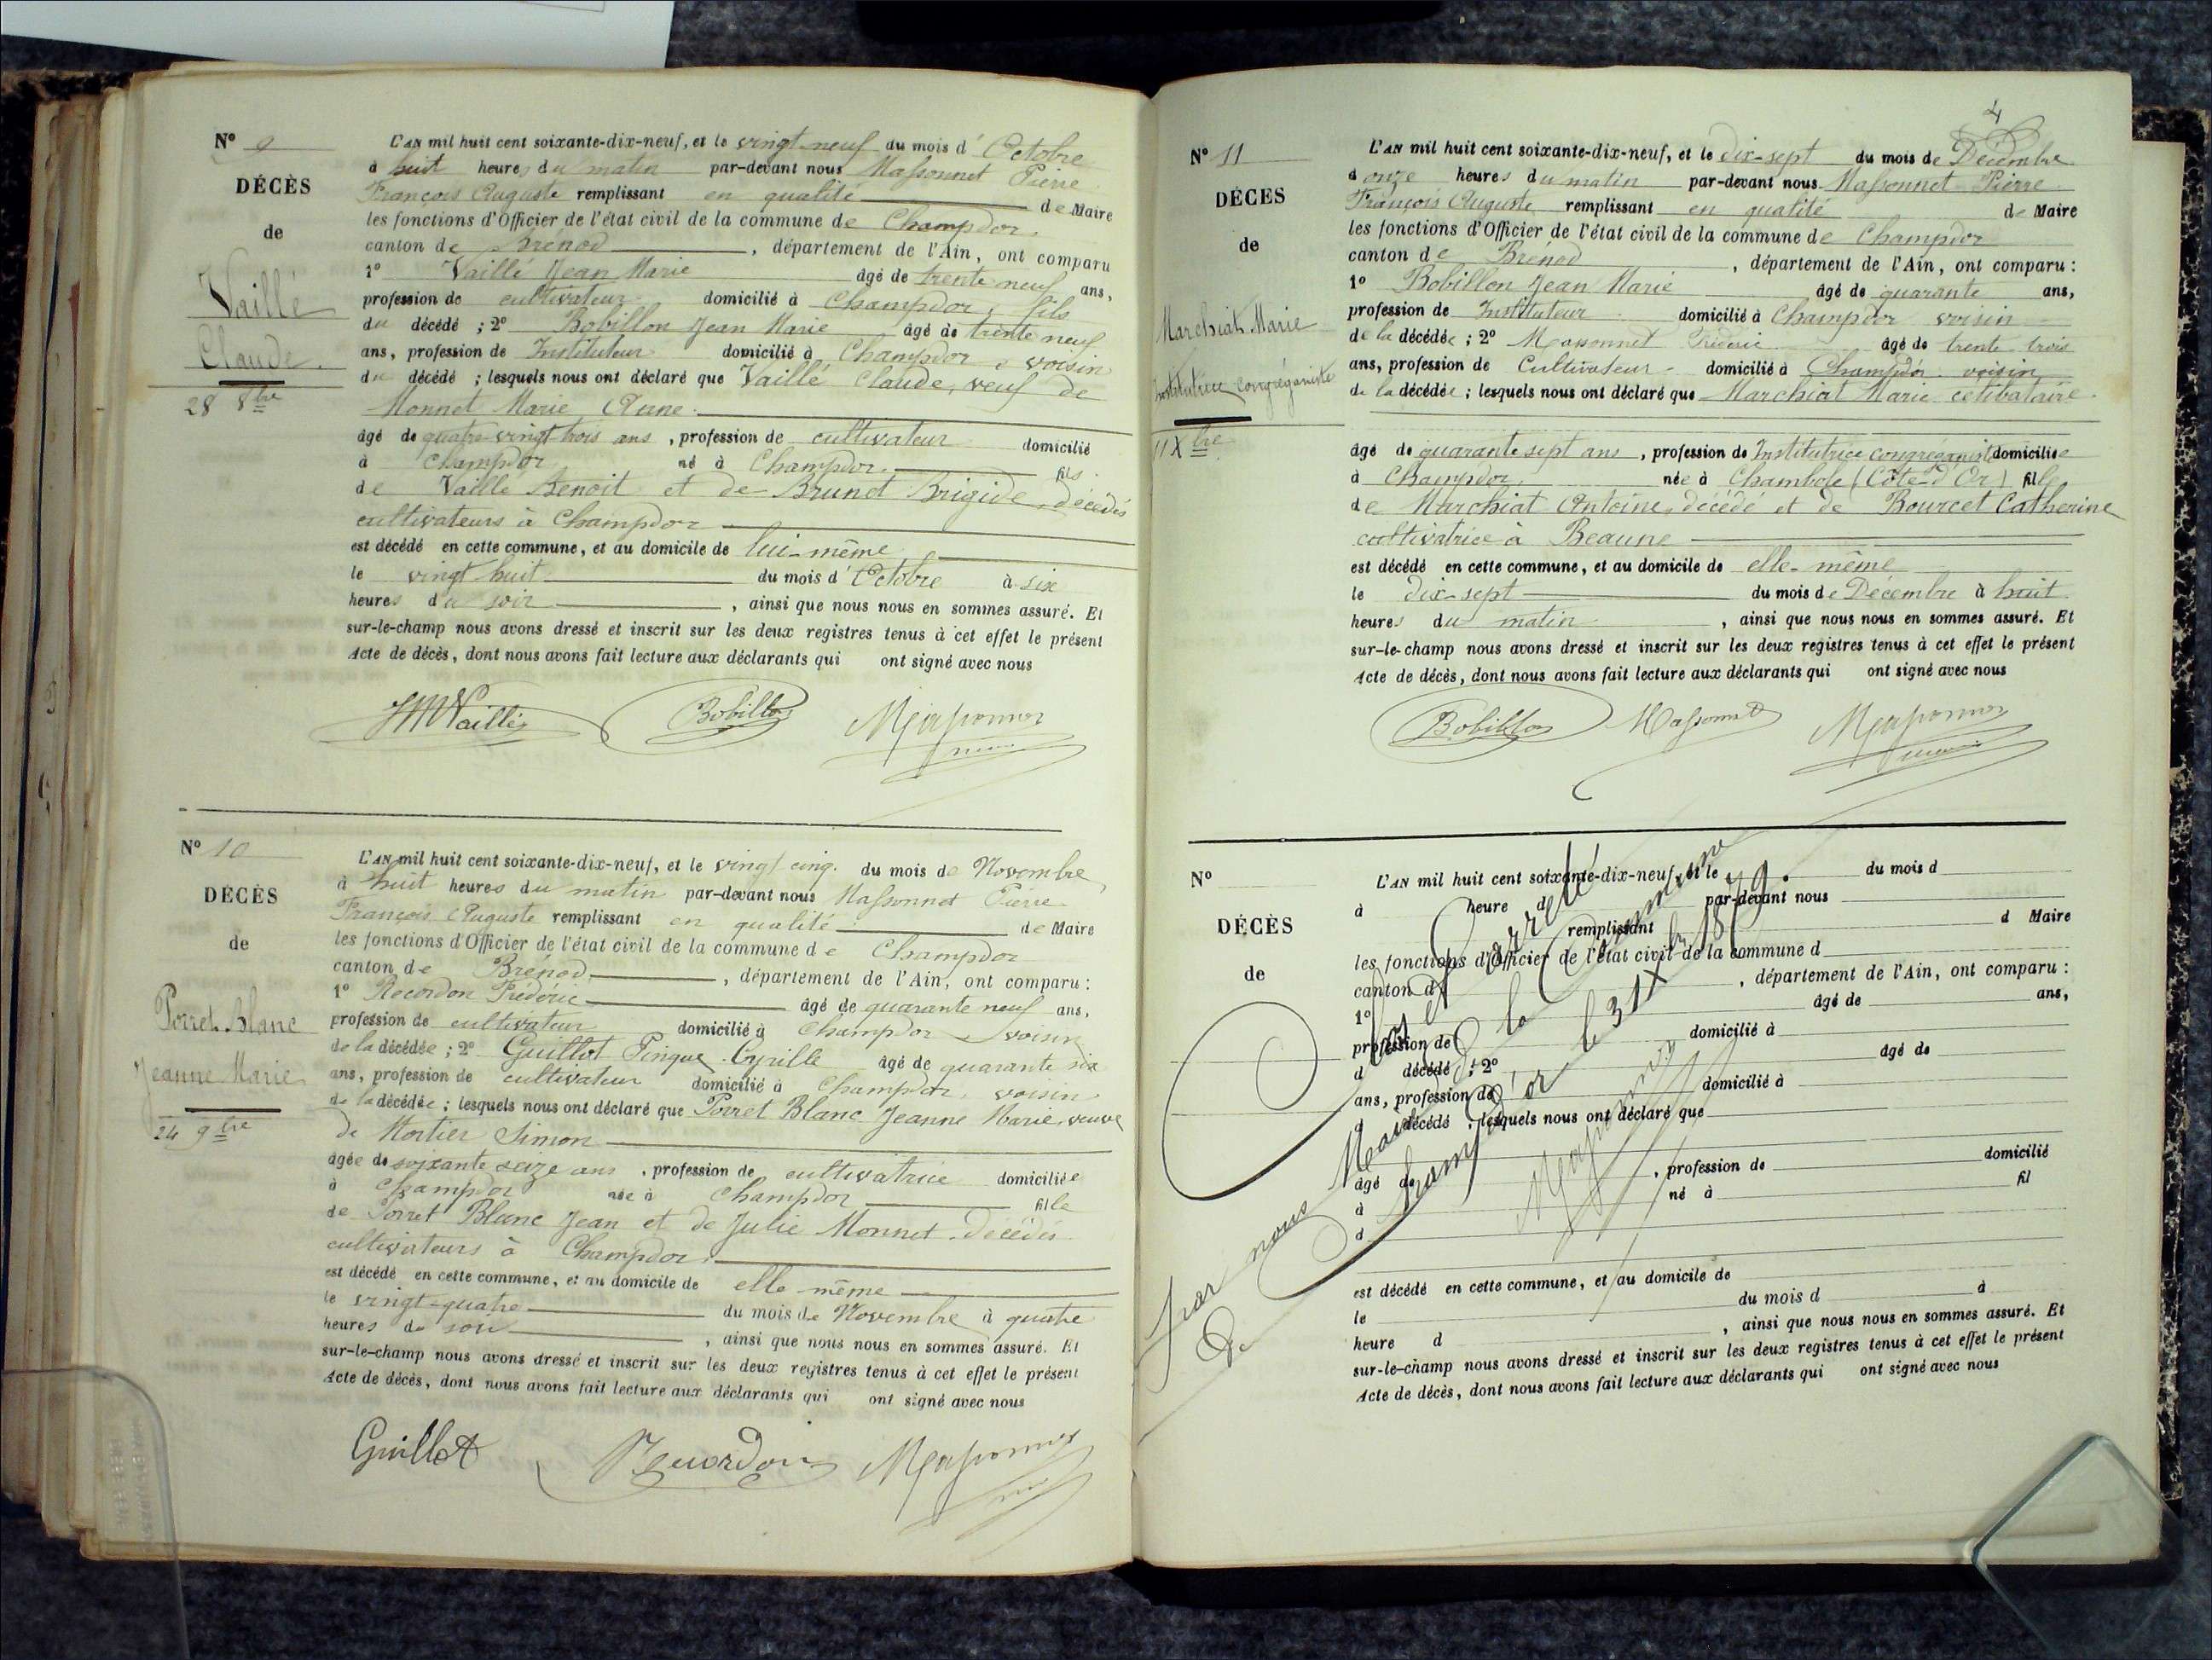 N° 9
DÉCÈS
de
Vaillé
Claude.
28 8bre
L'AN mil huit cent soixante-dix-neuf, et le vingt-neuf du mois d'Octobre
à huit heures du matin par-devant nous Massonnet Pierre
François Auguste remplissant en qualité de Maire
les fonctions d'Officier de l'état civil de la commune de Champdor.
canton de Brénod, département de l'Ain, ont comparu
1° Vaillé Jean Marie âgé de trente neuf ans,
profession de cultivateur domicilié à Champdor, fils
du décédé ; 2° Bobillon Jean Marie âgé de trente neuf
ans, profession de Instituteur domicilié à Champdor, voisin
du décédé ; lesquels nous ont déclaré que Vaillé Claude, veuf de
Monnet Marie Anne
âgé de quatre-vingt trois ans, profession de cultivateur domicilié
à Champdor né à Champdor. fils
de Vaillé Benoit et de Brunet Brigide, décédés
cultivateurs à Champdor
est décédé en cette commune, et au domicile de lui-même
le vingt huit du mois d'Octobre à six
heures du soir, ainsi que nous nous en sommes assuré. Et
sur-le-champ nous avons dressé et inscrit sur les deux registres tenus à cet effet le présent
Acte de décès, dont nous avons fait lecture aux déclarants qui ont signé avec nous
JM Vaillé Bobillon Massonnet
maire
N° 10
DÉCÈS
de
Porret Blanc
Jeanne Marie
24 9bre
L'AN mil huit cent soixante-dix-neuf, et le vingt cinq. du mois de Novembre,
à huit heures du matin par-devant nous Massonnet Pierre
François Auguste remplissant en qualité de Maire
les fonctions d'Officier de l'état civil de la commune de Champdor
canton de Brénod, département de l'Ain, ont comparu :
1° Recordon Frédéric âgé de quarante neuf ans,
profession de cultivateur domicilié à Champdor, voisin
de la décédée ; 2° Guillot Pingue Cyrille âgé de quarante six
ans, profession de cultivateur domicilié à Champdor, voisin
de la décédée ; lesquels nous ont déclaré que Porret Blanc Jeanne Marie, veuve
de Mortier Simon
âgée de soixante seize ans, profession de cultivatrice domiciliée
à Champdor née à Champdor fille
de Porret Blanc Jean et de Julie Monnet décédés
cultivateurs à Champdor.
est décédé en cette commune, et au domicile de elle même
le vingt-quatre du mois de Novembre à quatre
heures du soir, ainsi que nous nous en sommes assuré. Et
sur-le-champ nous avons dressé et inscrit sur les deux registres tenus à cet effet le présent
Acte de décès, dont nous avons fait lecture aux déclarants qui ont signé avec nous
Guillot Recordon Massonnet
4
N° 11
DÉCÈS
de
Marchiat Marie
Institutrice congréganiste
11 Xbre
L'AN mil huit cent soixante-dix-neuf, et le dix-sept du mois de Décembre
à onze heures du matin par-devant nous Massonnet Pierre
François Auguste remplissant en qualité de Maire
les fonctions d'Officier de l'état civil de la commune de Champdor
canton de Brénod, département de l'Ain, ont comparu :
1° Bobillon Jean Marie âgé de quarante ans,
profession de Instituteur domicilié à Champdor voisin
de la décédée ; 2° Massonnet Frédéric âgé de trente trois
ans, profession de Cultivateur domicilié à Champdor voisin
de la décédée ; lesquels nous ont déclaré que Marchiat Marie célibataire.
âgé de quarante sept ans, profession de Institutrice congréganiste domiciliée
à Champdor, née à Chambole (Côte-d'Or) fille
de Marchiat Antoine, décédé et de Bourcet Catherine
cultivatrice à Beaune
est décédé en cette commune, et au domicile de elle-même
le dix-sept du mois de Décembre à huit
heures du matin, ainsi que nous nous en sommes assuré. Et
sur-le-champ nous avons dressé et inscrit sur les deux registres tenus à cet effet le présent
Acte de décès, dont nous avons fait lecture aux déclarants qui ont signé avec nous
Bobillon Massonnet Massonnet
maire
N°
DÉCÈS
de
L'AN mil huit cent soixante-dix-neuf, et le du mois d
à heure d par-devant nous
remplissant d Maire
les fonctions d'Officier de l'état civil de la commune d
canton d, département de l'Ain, ont comparu :
1° âgé de ans,
profession de domicilié à
d décédé ; 2° âgé de
ans, profession de domicilié à
d décédé ; lesquels nous ont déclaré que
âgé de, profession de domicilié
à né à fil
d
est décédé en cette commune, et au domicile de
le du mois d à
heure d, ainsi que nous nous en sommes assuré. Et
sur-le-champ nous avons dressé et inscrit sur les deux registres tenus à cet effet le présent
Acte de décès, dont nous avons fait lecture aux déclarants qui ont signé avec nous
Clos et arrêté
Par nous Maire de la Commune
De Champd'or le 31 Xbre 1879.
Massonnet